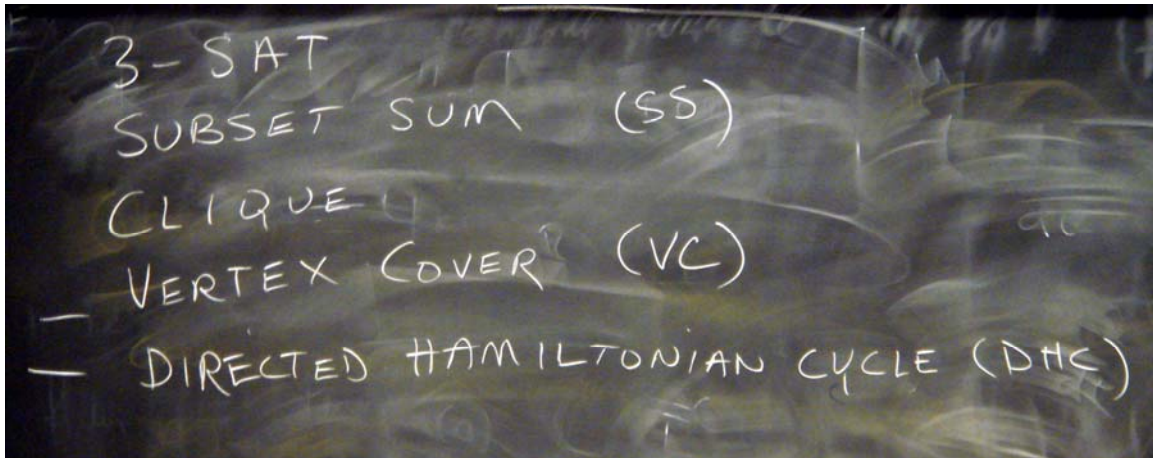 3-SAT
SUBSET SUM (SS)
CLIQUE
— VERTEX COVER (VC)
— DIRECTED HAMILTONIAN CYCLE (DHC)